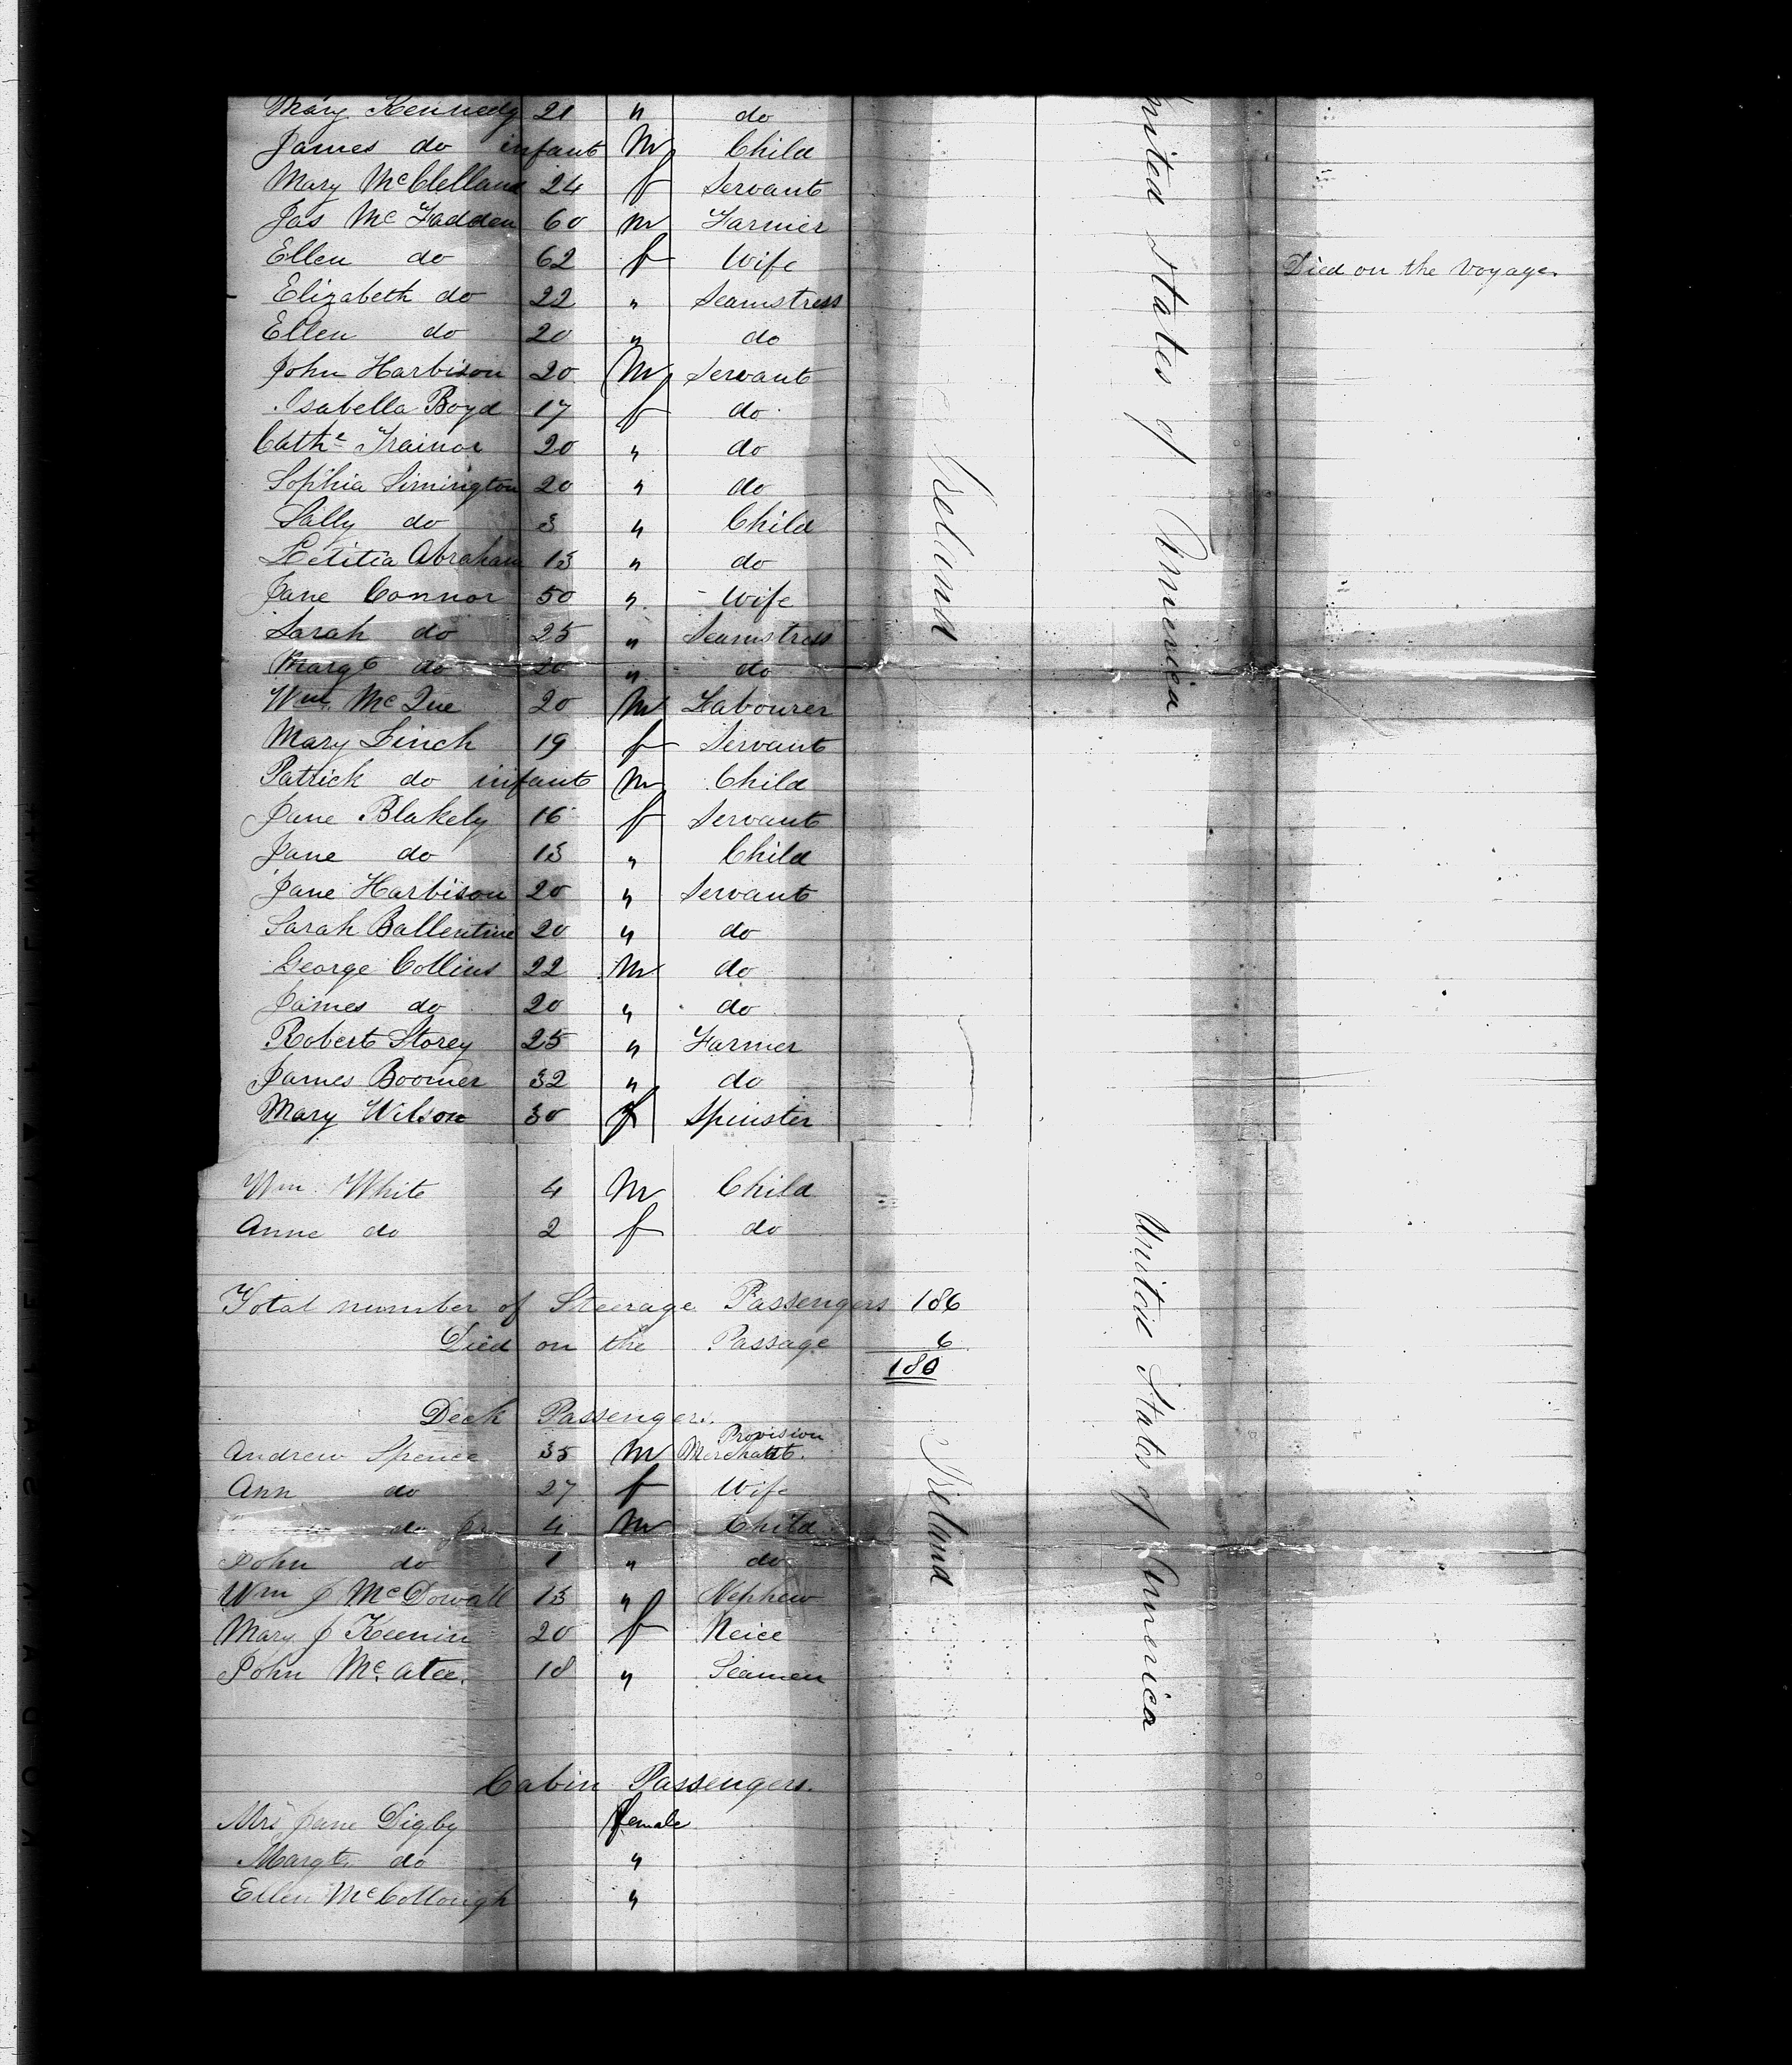 Mary Kennedy 21 " do
James do infant M Child
Mary McClelland 24 f Servant
Jas McFadden 60 m Farmer
Ellen do 62 f Wife Died on the voyage.
Elizabeth do 22 " Seamstress
Ellen do 20 " do
John Harbison 20 M Servant
Isabella Boyd 17 f do
Cathe Trainor 20 " do
Sophia Simington 20 " do
Sally do 3 " Child
Letitia Abraham 13 " do
Jane Connor 50 " Wife
Sarah do 25 " Seamstress
Margt do 20 " do
Wm McQue 20 M Labourer
Mary Linch 19 f Servant
Patrick do infant M Child
Jane Blakely 16 f Servant
Jane do 13 " Child
Jane Harbison 20 " Servant
Sarah Ballentine 20 " do
George Collins 22 M do
James do 20 " do
Robert Storey 25 " Farmer
James Boomer 32 " do
Mary Wilson 30 f Spinster
Ireland
United States of America
Wm White 4 M Child
Anne do 2 f do
Total number of Steerage Passengers 186
Died on the Passage 6
180
Deck Passengers.
Andrew Spence 35 M Provision Merchant.
Ann do 27 f Wife
do Jr 4 M Child
John do 1 " do
Wm J McDowall 13 " Nephew
Mary J Keenin 20 f Neice
John McAtee. 18 " Seamen
Ireland
United States of America
Cabin Passengers.
Mrs Jane Digby female
Margt do "
Ellen McCollough "